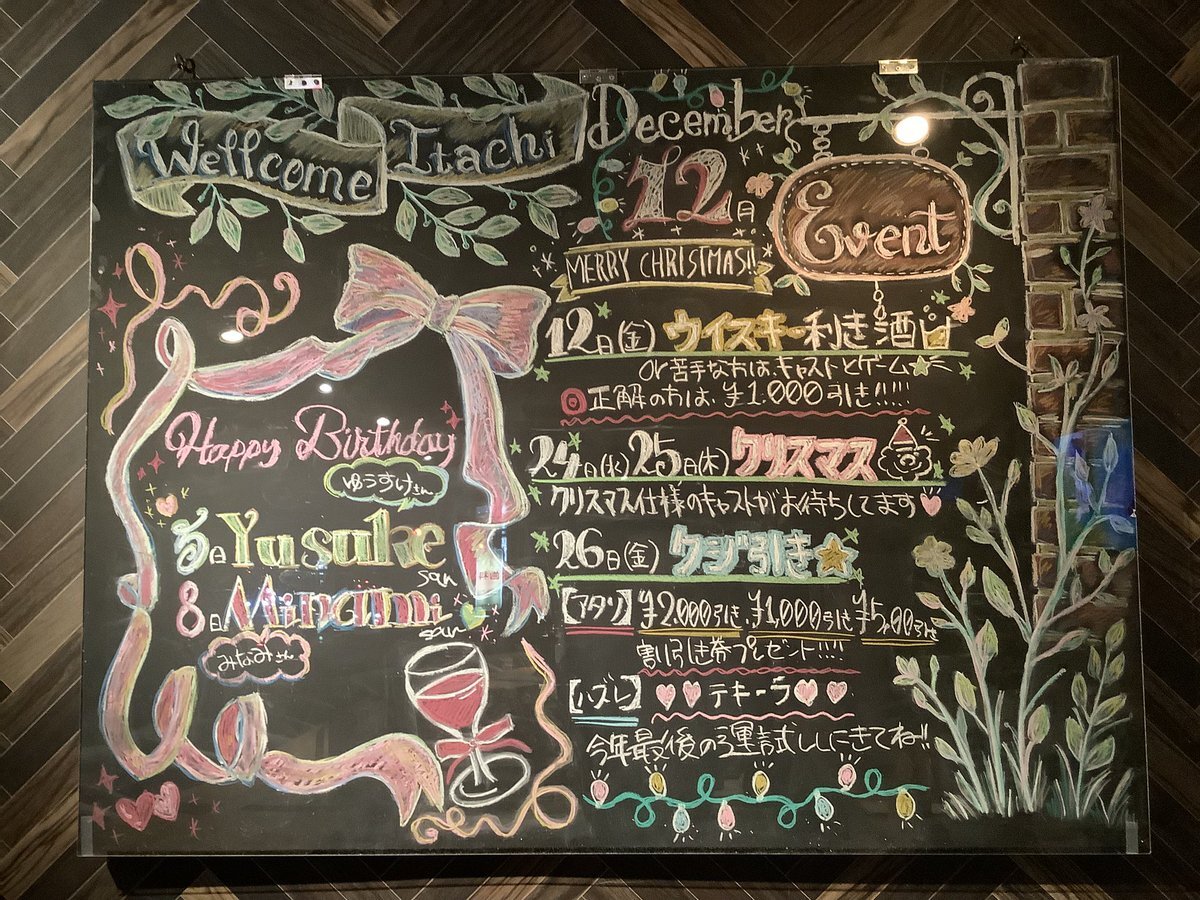 Wellcome Itachi
Happy Birthday
ゆうすけさん
3日 Yusuke san
8日 Minami san
みなみさん
December
12月
Event
MERRY CHRISTMAS!!
12日(金) ウイスキー利き酒
or 苦手な方は、キャストとゲーム
正解の方は、¥1.000引き!!!!!
24日(水) 25日(木) クリスマス
クリスマス仕様のキャストがお待ちしてます
26日(金) クジ引き
【アタリ】 ¥2.000引き、¥1,000引き ¥500引き
割引き券プレゼント!!!!
【ハズレ】 テキーラ
今年最後の運試ししにきてね!!